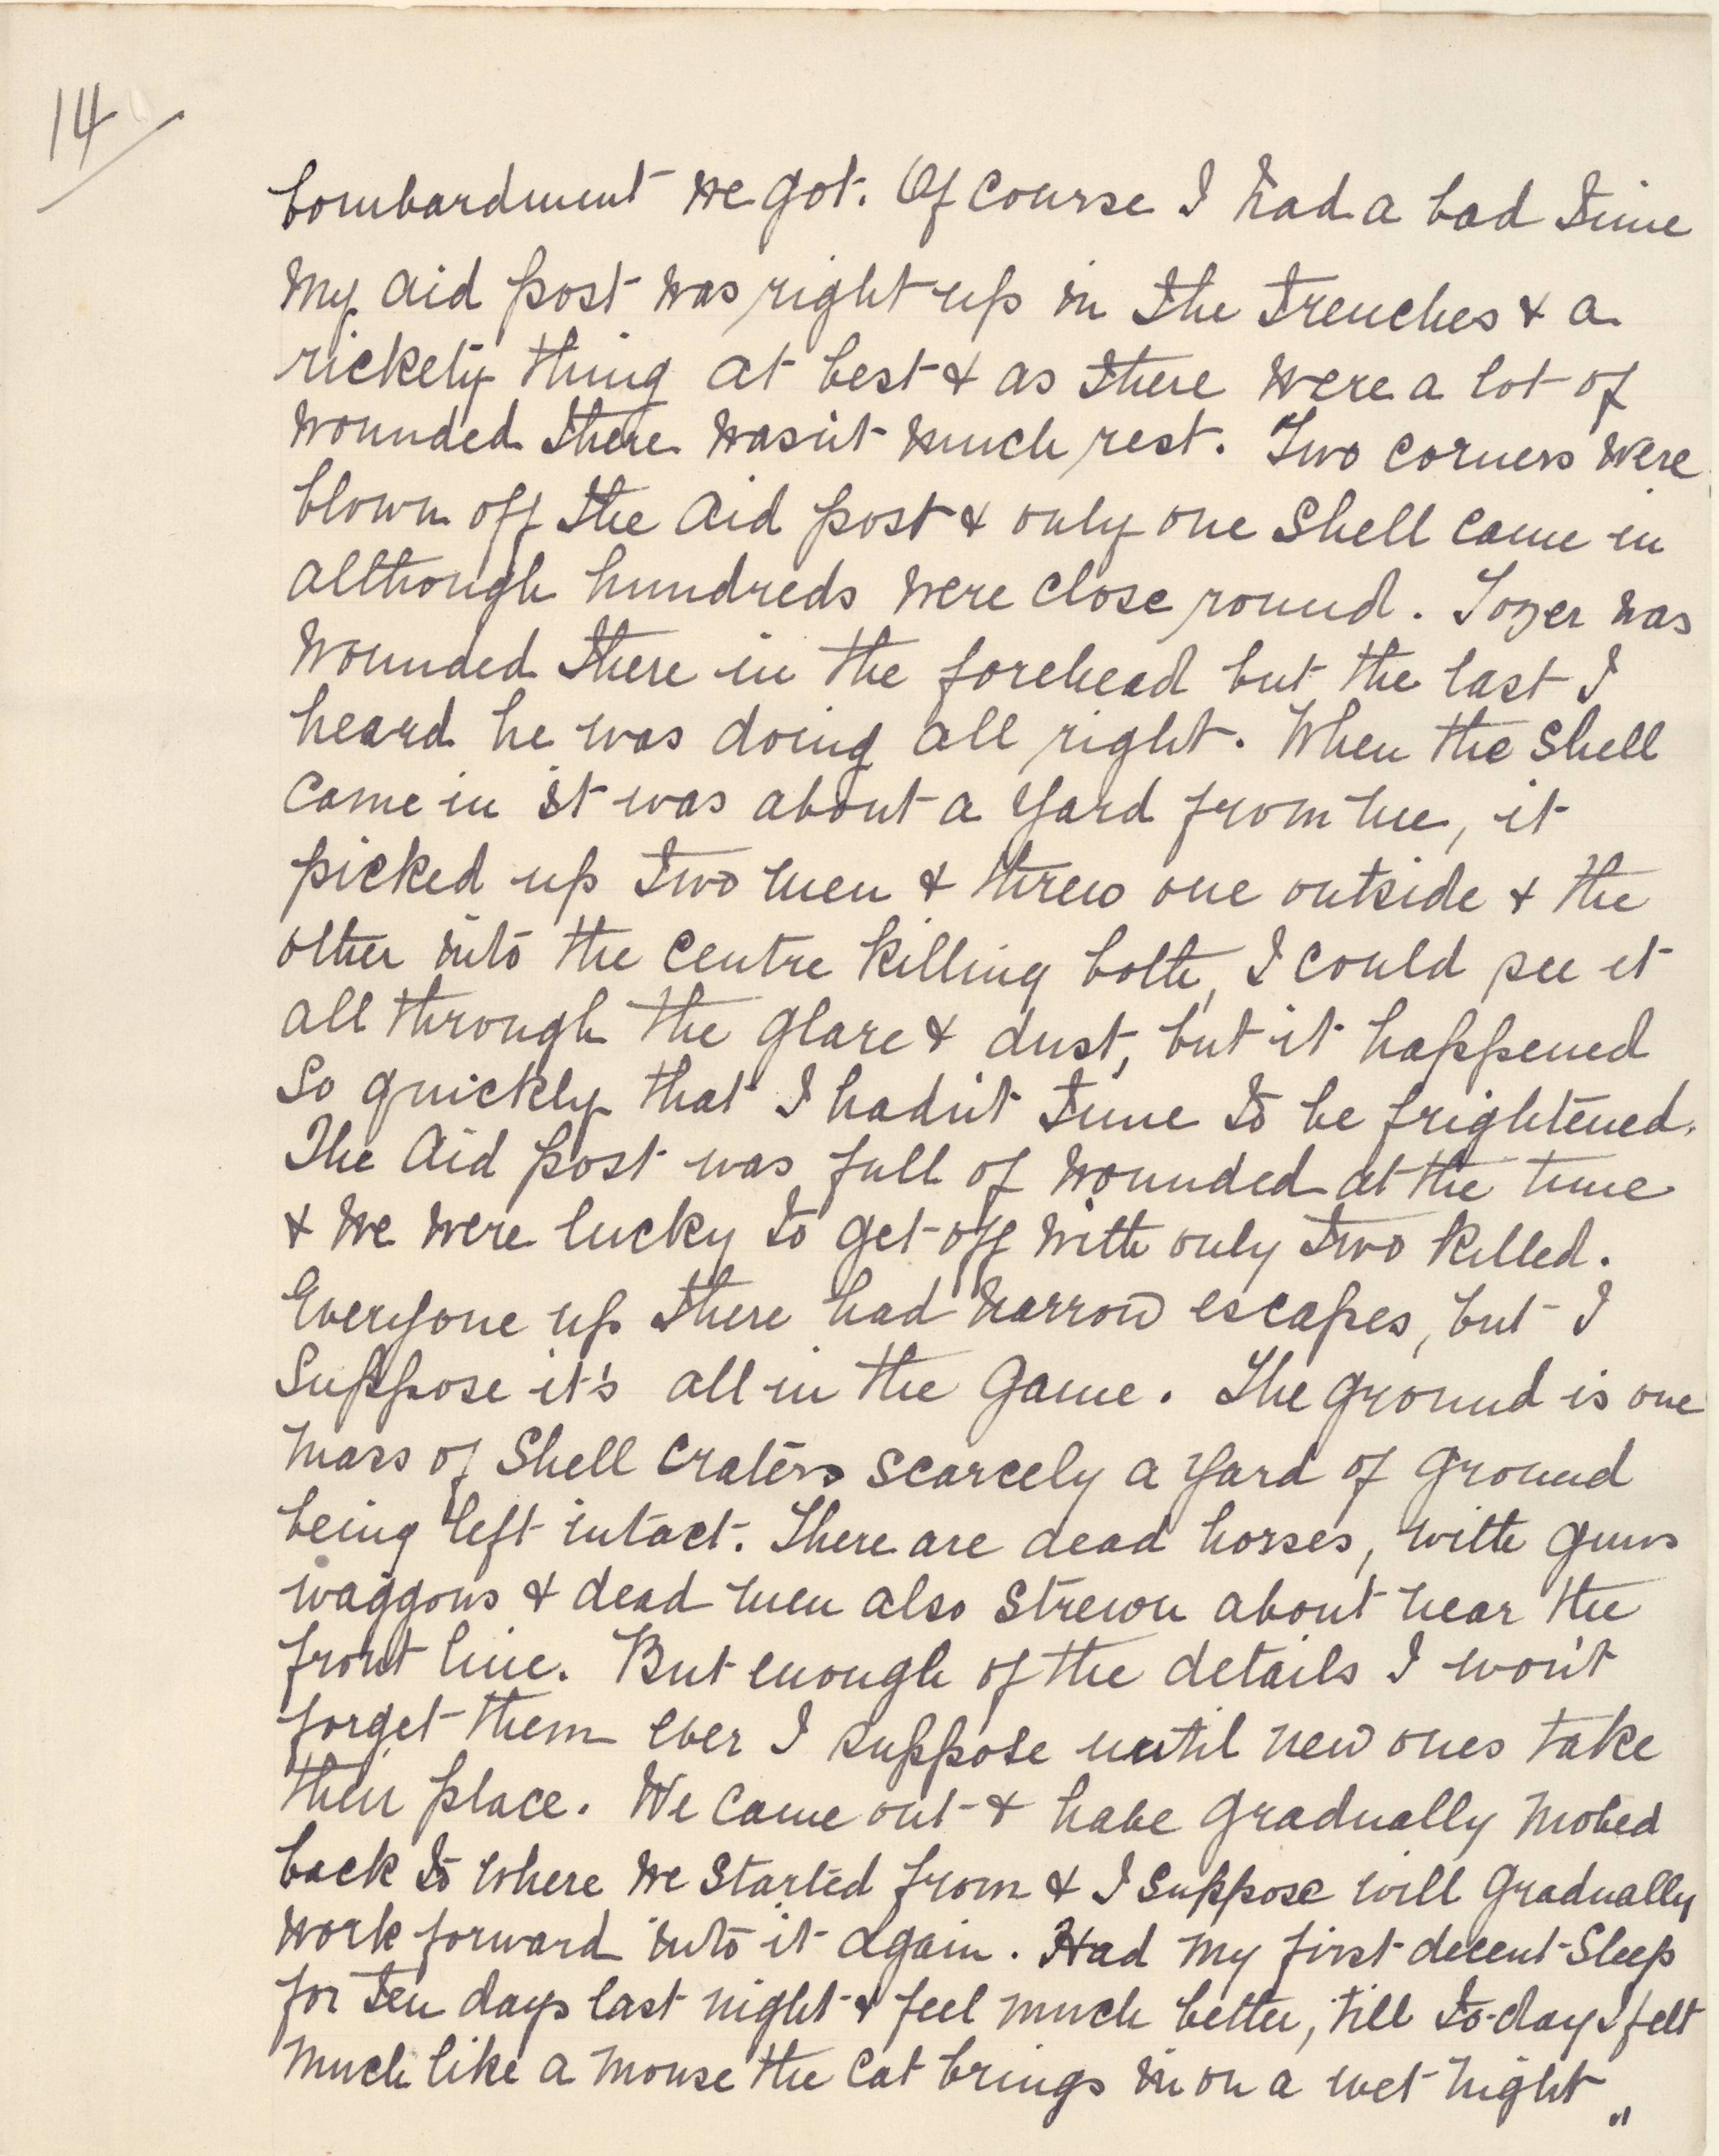 14
bombardment we got. Of course I had a bad time
My aid post was right up in the trenches & a
rickety thing at best & as there were a lot of
wounded there wasn't much rest. Two corners were
blown off the aid post & only one shell came in
although hundreds were close round. Tozer was
wounded there in the forehead but the last I
heard he was doing all right. When the shell
came in it was about a yard from me, it
picked up two men & threw one outside & the
other into the centre killing both, I could see it
all through the glare & dust, but it happened
so quickly that I hadn't time to be frightened.
The Aid post was full of wounded at the time
& we were lucky to get off with only two killed.
Everyone up there had narrow escapes, but I
suppose it's all in the game. The ground is one
mass of shell craters scarcely a yard of ground
being left intact. There are dead horses, with guns
waggons & dead men also strewn about near the
front line. But enough of the details I won't
forget them ever I suppose until new ones take
their place. We came out & have gradually moved
back to where we started from & I suppose will gradually
work forward into it again. Had my first decent sleep
for ten days last night & feel much better, till to-day I felt
much like a mouse the cat brings in on a wet night "